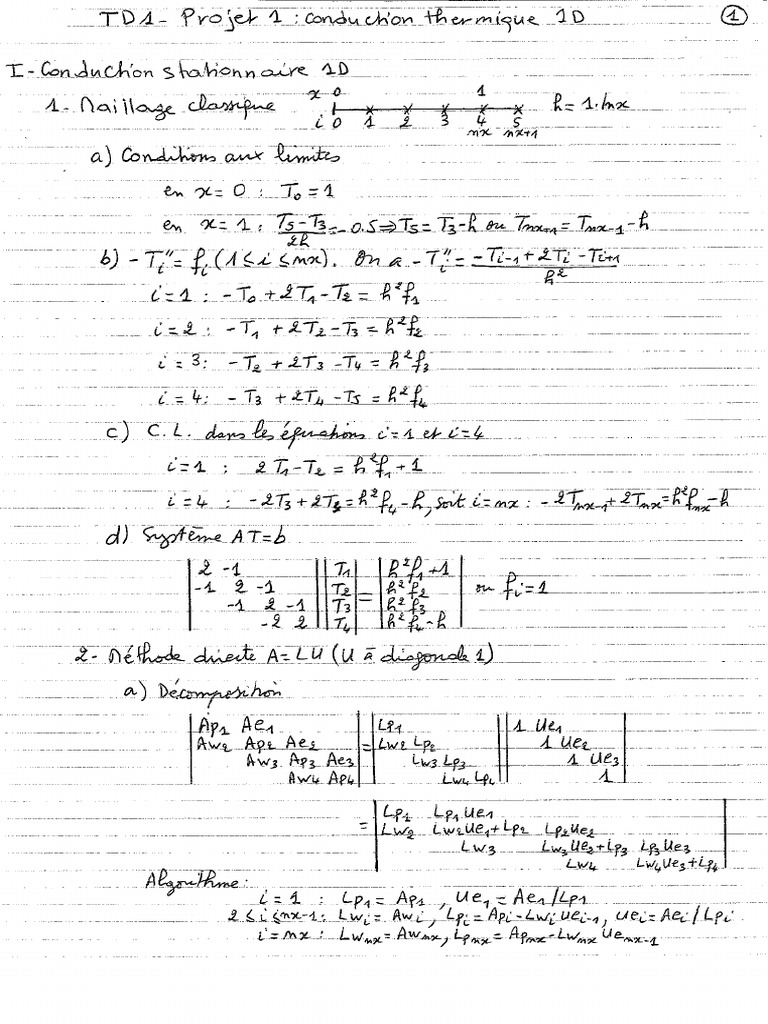 TD1 - Projet 1 : conduction thermique 1D ①
I - Conduction stationnaire 1D
x 0 1
1 - Maillage classique h = 1./nx
i 0 1 2 3 4 5
nx nx+1
a) Conditions aux limites
en x = 0 : T₀ = 1
en x = 1 : (T5 - T3)/2h = -0.5 ⇒ T5 = T3 - h ou Tnx+1 = Tnx-1 - h
b) - Ti" = fi (1 ≤ i ≤ nx). On a - Ti" = (-Ti-1 + 2Ti - Ti+1)/h²
i = 1 : - T0 + 2T1 - T2 = h²f1
i = 2 : - T1 + 2T2 - T3 = h²f2
i = 3 : - T2 + 2T3 - T4 = h²f3
i = 4 : - T3 + 2T4 - T5 = h²f4
c) C.L. dans les équations i=1 et i=4
i = 1 : 2T1 - T2 = h²f1 + 1
i = 4 : -2T3 + 2T4 = h²f4 - h, soit i = nx : -2Tnx-1 + 2Tnx = h²fnx - h
d) Système AT = b
| 2 -1 | | T1 | | h²f1 + 1 |
| -1 2 -1 | | T2 | = | h²f2 | ou fi = 1
| -1 2 -1 | | T3 | | h²f3 |
| -2 2 | | T4 | | h²f4 - h |
2 - Méthode directe A = LU (U à diagonale 1)
a) Décomposition
| Ap1 Ae1 | | Lp1 | | 1 Ue1 |
| Aw2 Ap2 Ae2 | = | Lw2 Lp2 | | 1 Ue2 |
| Aw3 Ap3 Ae3 | | Lw3 Lp3 | | 1 Ue3 |
| Aw4 Ap4 | | Lw4 Lp4 | | 1 |
| Lp1 Lp1Ue1 |
= | Lw2 Lw2Ue1+Lp2 Lp2Ue2 |
| Lw3 Lw3Ue2+Lp3 Lp3Ue3 |
| Lw4 Lw4Ue3+Lp4 |
Algorithme :
i = 1 : Lp1 = Ap1, Ue1 = Ae1/Lp1
2 ≤ i ≤ nx-1 : Lwi = Awi, Lpi = Api - Lwi Uei-1, Uei = Aei / Lpi
i = nx : Lwnx = Awnx, Lpnx = Apnx - Lwnx Uenx-1